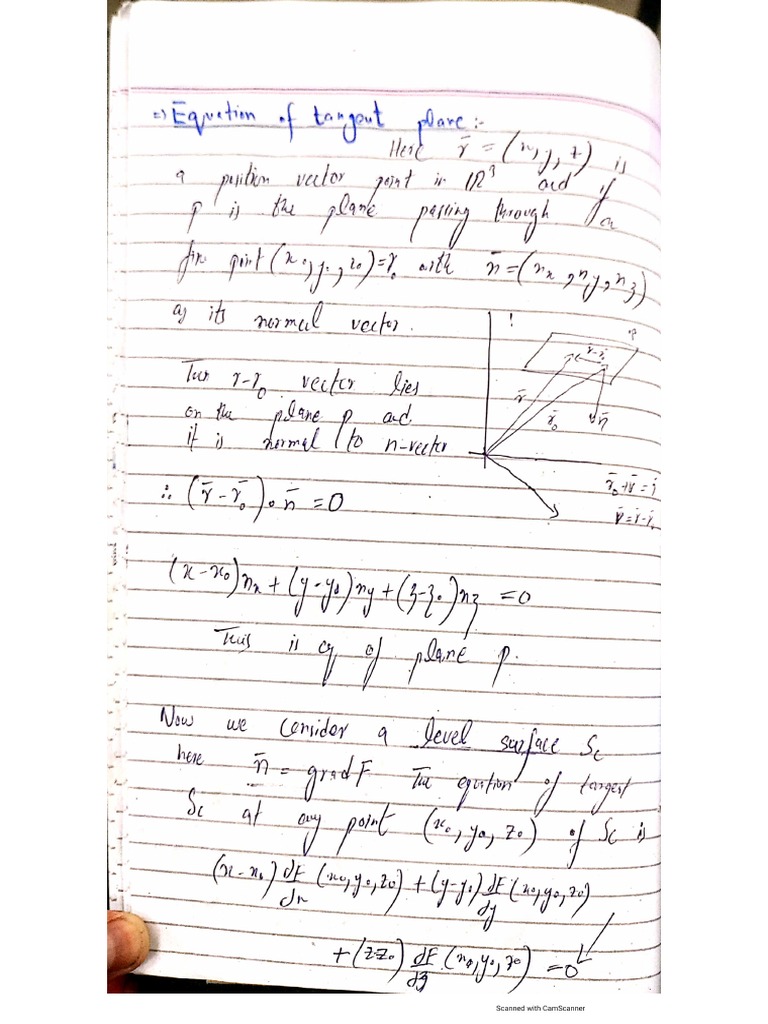 ⇒ Equation of tangout plane :-
Here r̄ = (x, y, z) is
a position vector point in ℝ³ and if
P is the plane passing through a
fix point (x₀, y₀, z₀) = r₀ with n̄ = (nx, ny, nz)
as its normal vector.
P
r-r₀
r̄
r̄₀
n̄
Then r-r₀ vector lies
on the plane p and
it is normal to n-vector
r̄₀ + v̄ = r̄
v̄ = r̄ - r̄₀
∴ (r̄ - r̄₀) · n̄ = 0
(x - x₀) nx + (y - y₀) ny + (z - z₀) nz = 0
This is eq of plane P.
Now we consider a level surface Sc
here n̄ = grad F The eqution of targest
Sc at any point (x₀, y₀, z₀) of Sc is
(x - x₀) dF/dx (x₀, y₀, z₀) + (y - y₀) dF/dy (x₀, y₀, z₀)
+ (z - z₀) dF/dz (x₀, y₀, z₀) = 0
Scanned with CamScanner